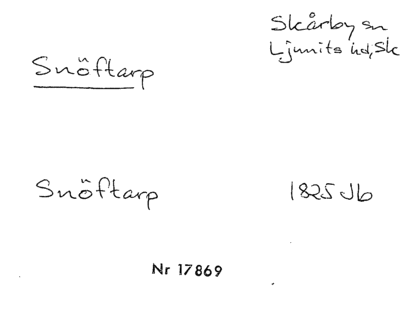 Skårby sn
Ljunits hd, Sk
Snöftarp
Snöftarp 1825 Jb
Nr 17869